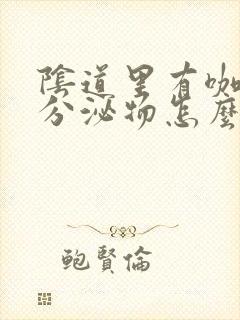 陰道里有咖
分泌物怎麼
鮑賢倫